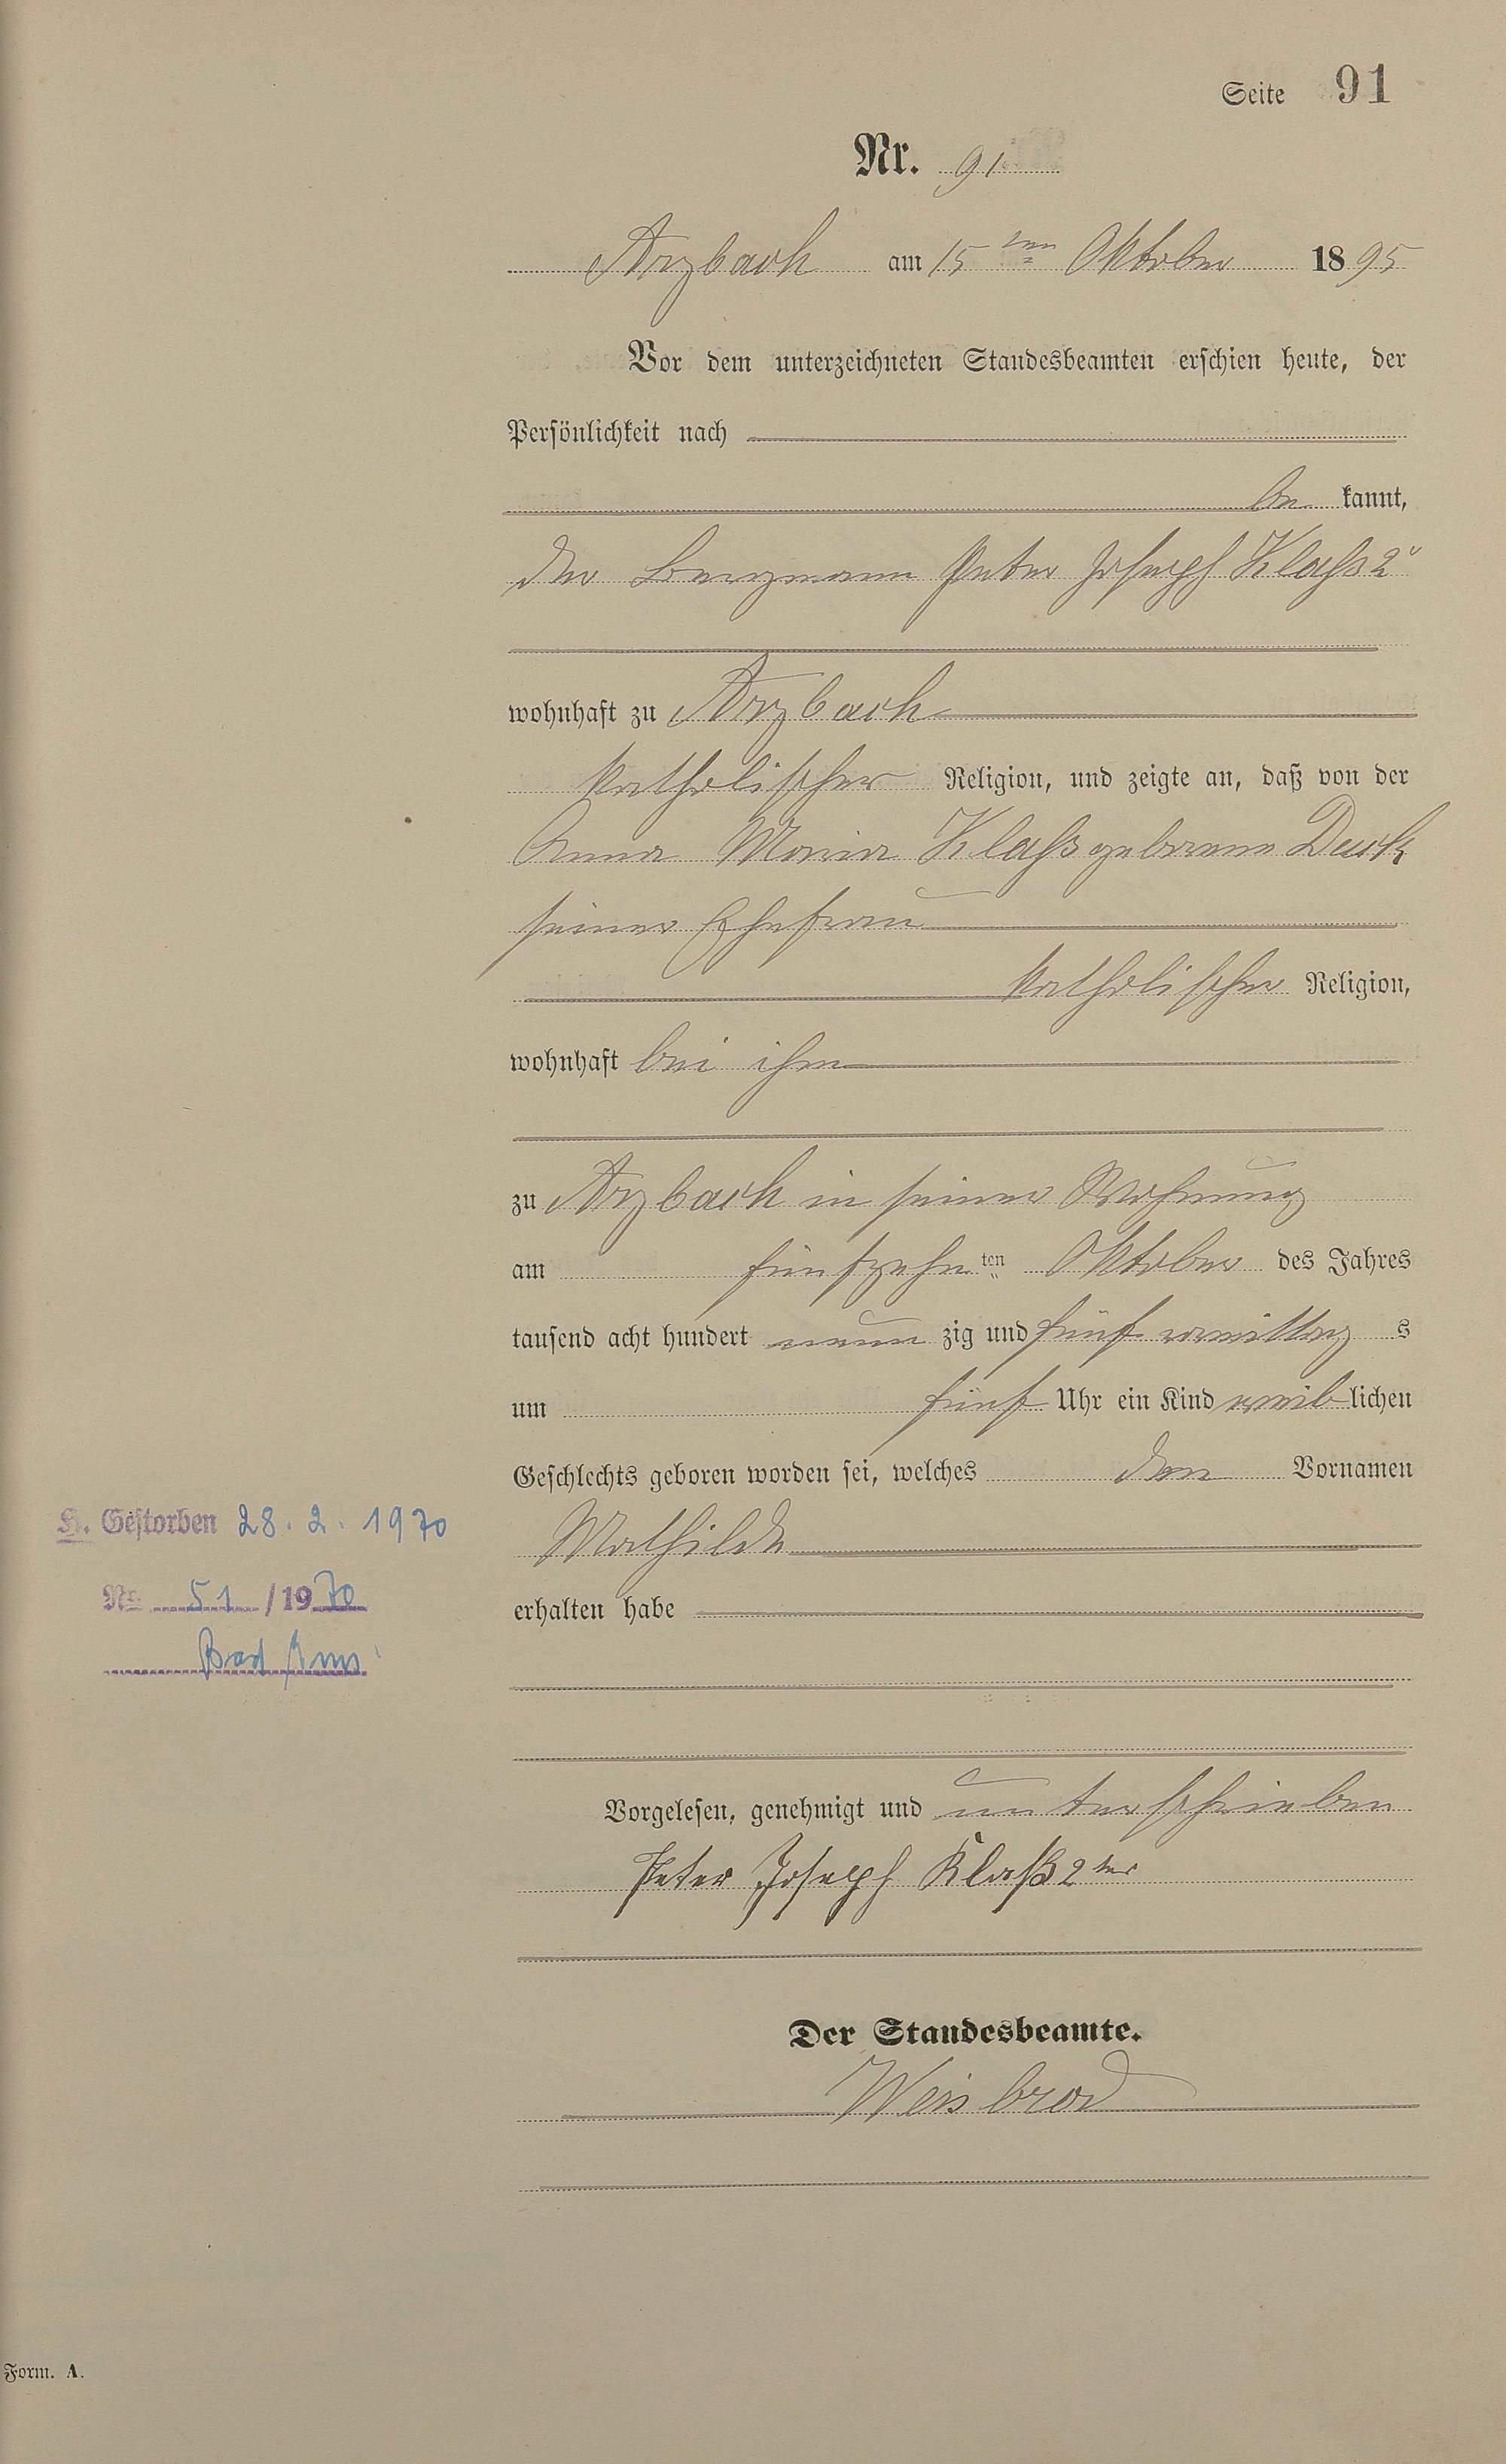 Seite 91
Nr. 91
Arzbach am 15ten Oktober 1895
Vor dem unterzeichneten Standesbeamten erschien heute, der
Persönlichkeit nach
be kannt,
der Bergmann Peter Joseph Klaß 2r
wohnhaft zu Arzbach
katholischer Religion, und zeigte an, daß von der
Anna Maria Klaß geborene
seiner Ehefrau
katholischer Religion,
wohnhaft bei ihm
zu Arzbach in seiner Wohnung
am fünfzehnten Oktober des Jahres
tausend acht hundert neun zig und fünf vormittag s
um fünf Uhr ein Kind weib lichen
Geschlechts geboren worden sei, welches den Vornamen
H. Gestorben 28.2.1970
Mathilde
Nr. 51 /1970
erhalten habe
Bad Ems
Vorgelesen, genehmigt und unterschrieben
Peter Joseph Klaß 2ter
Der Standesbeamte.
Weisbrod
Form. A.